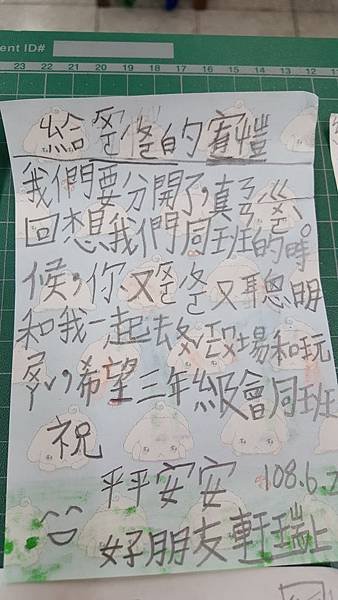 ent ID#
23 22 21 20 19 18 17 16 15 14 13 12
給ㄕㄨㄞˋㄕㄨㄞˋ的宥愷
我們要分開了,真ㄎㄜˇㄒㄧˊ。
回想我們同班的時
候,你又ㄕㄨㄞˋ又聰明
和我一起去
場和玩
希望三年級會同班
祝
平平安安 108.6.2
好朋友軒瑞上